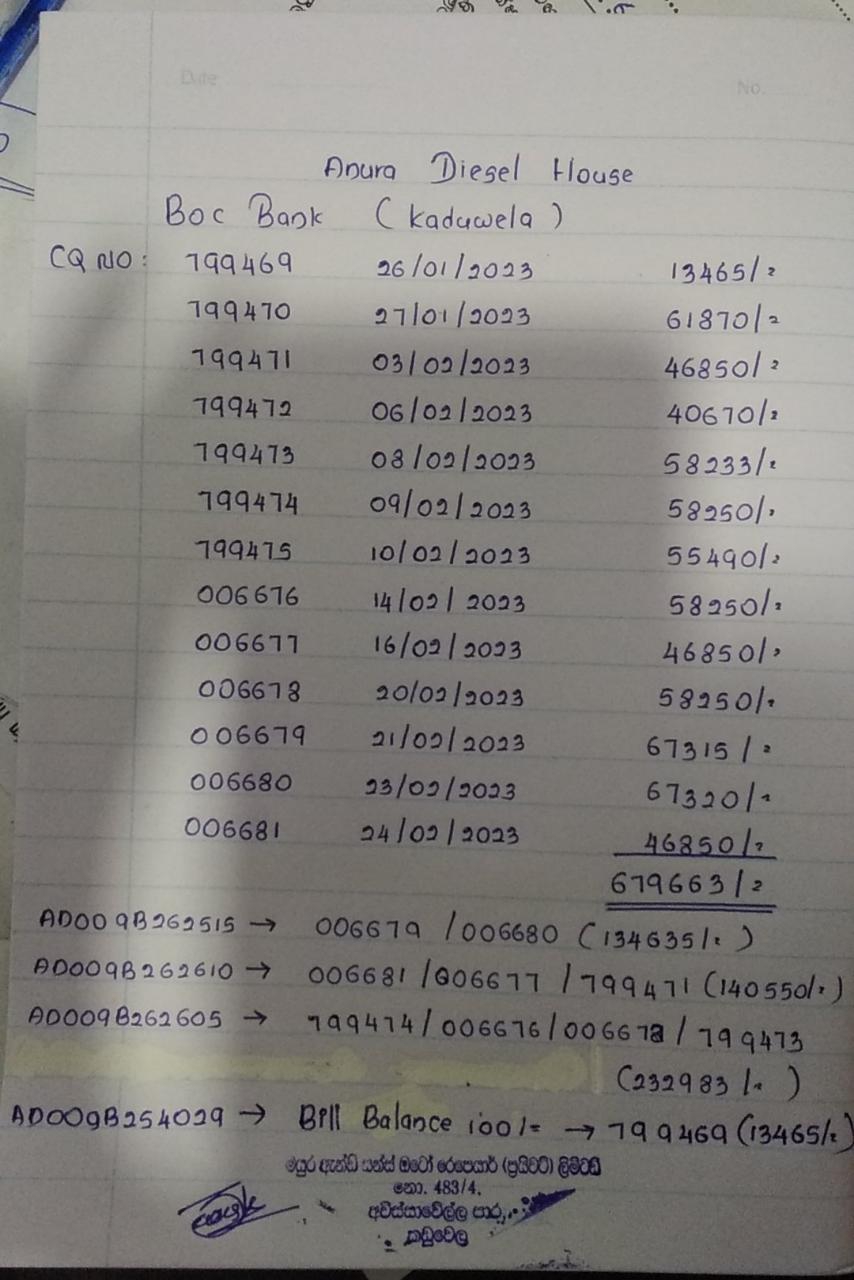 Date No.
Anura Diesel House
BOC Bank (Kaduwela)
CQ NO: 799469 26/01/2023 13465/=
799470 27/01/2023 61870/=
799471 03/02/2023 46850/=
799472 06/02/2023 40670/=
799473 08/02/2023 58233/=
799474 09/02/2023 58250/=
799475 10/02/2023 55490/=
006676 14/02/2023 58250/=
006677 16/02/2023 46850/=
006678 20/02/2023 58250/=
006679 21/02/2023 67315/=
006680 23/02/2023 67320/=
006681 24/02/2023 46850/=
679663/=
AD009B262515 → 006679/006680 (134635/=)
AD009B262610 → 006681/006677/799471 (140550/=)
AD009B262605 → 799474/006676/006678/799473
(232983/=)
AD009B254029 → Bill Balance 100/= → 799469 (13465/=)
මයුර ඇන්ඩ් සන්ස් ඔටෝ රෙපෙයාර් (ප්‍රයිවට්) ලිමිටඩ්
නො. 483/4,
අවිස්සාවේල්ල පාර,
කඩුවෙල